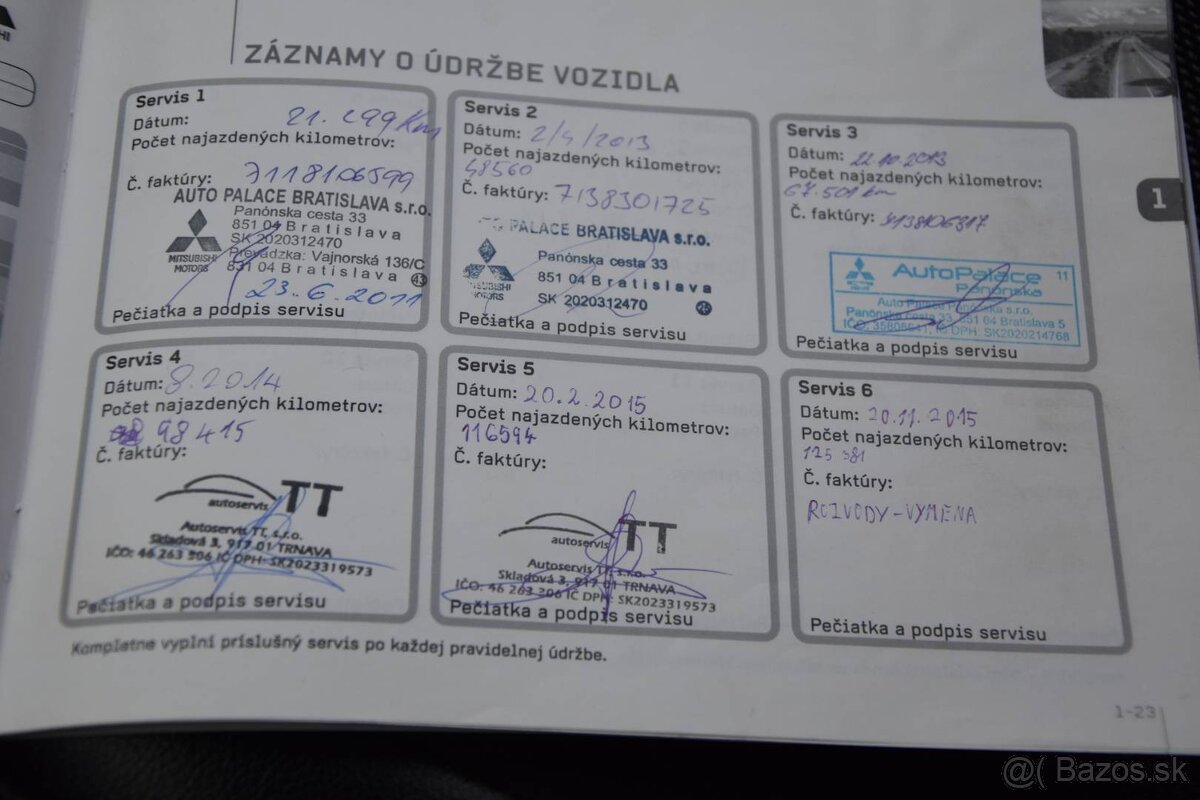 ZÁZNAMY O ÚDRŽBE VOZIDLA
Servis 1
Dátum: 21.299 Km
Počet najazdených kilometrov:
Č. faktúry: 7118106599
AUTO PALACE BRATISLAVA s.r.o.
Panónska cesta 33
851 04 Bratislava
SK 2020312470
Prevádzka: Vajnorská 136/C
831 04 Bratislava 43
MITSUBISHI
MOTORS
23.6.2011
Pečiatka a podpis servisu
Servis 2
Dátum: 2/4/2013
Počet najazdených kilometrov:
48560
Č. faktúry: 7138301725
PALACE BRATISLAVA s.r.o.
Panónska cesta 33
851 04 Bratislava
SK 2020312470
MOTORS
Pečiatka a podpis servisu
Servis 3
Dátum: 22.10.2013
Počet najazdených kilometrov:
67.501 km
Č. faktúry:
AutoPalace 11
Panónska
Panónska cesta 33, 851 04 Bratislava 5
DPH: SK2020214768
Pečiatka a podpis servisu
Servis 4
Dátum: 8.2014
Počet najazdených kilometrov:
98415
Č. faktúry:
autoservis TT
Autoservis TT, s.r.o.
Skladová 3, 917 01 TRNAVA
IČO: 46 263 306 IČ DPH: SK2023319573
Pečiatka a podpis servisu
Servis 5
Dátum: 20.2.2015
Počet najazdených kilometrov:
116594
Č. faktúry:
autoservis TT
Autoservis TT, s.r.o.
Skladová 3, 917 01 TRNAVA
IČO: 46 263 306 IČ DPH: SK2023319573
Pečiatka a podpis servisu
Servis 6
Dátum: 20.11.2015
Počet najazdených kilometrov:
125 381
Č. faktúry:
ROZVODY - VYMENA
Pečiatka a podpis servisu
Kompletne vyplní príslušný servis po každej pravidelnej údržbe.
1
1-23
@( Bazos.sk